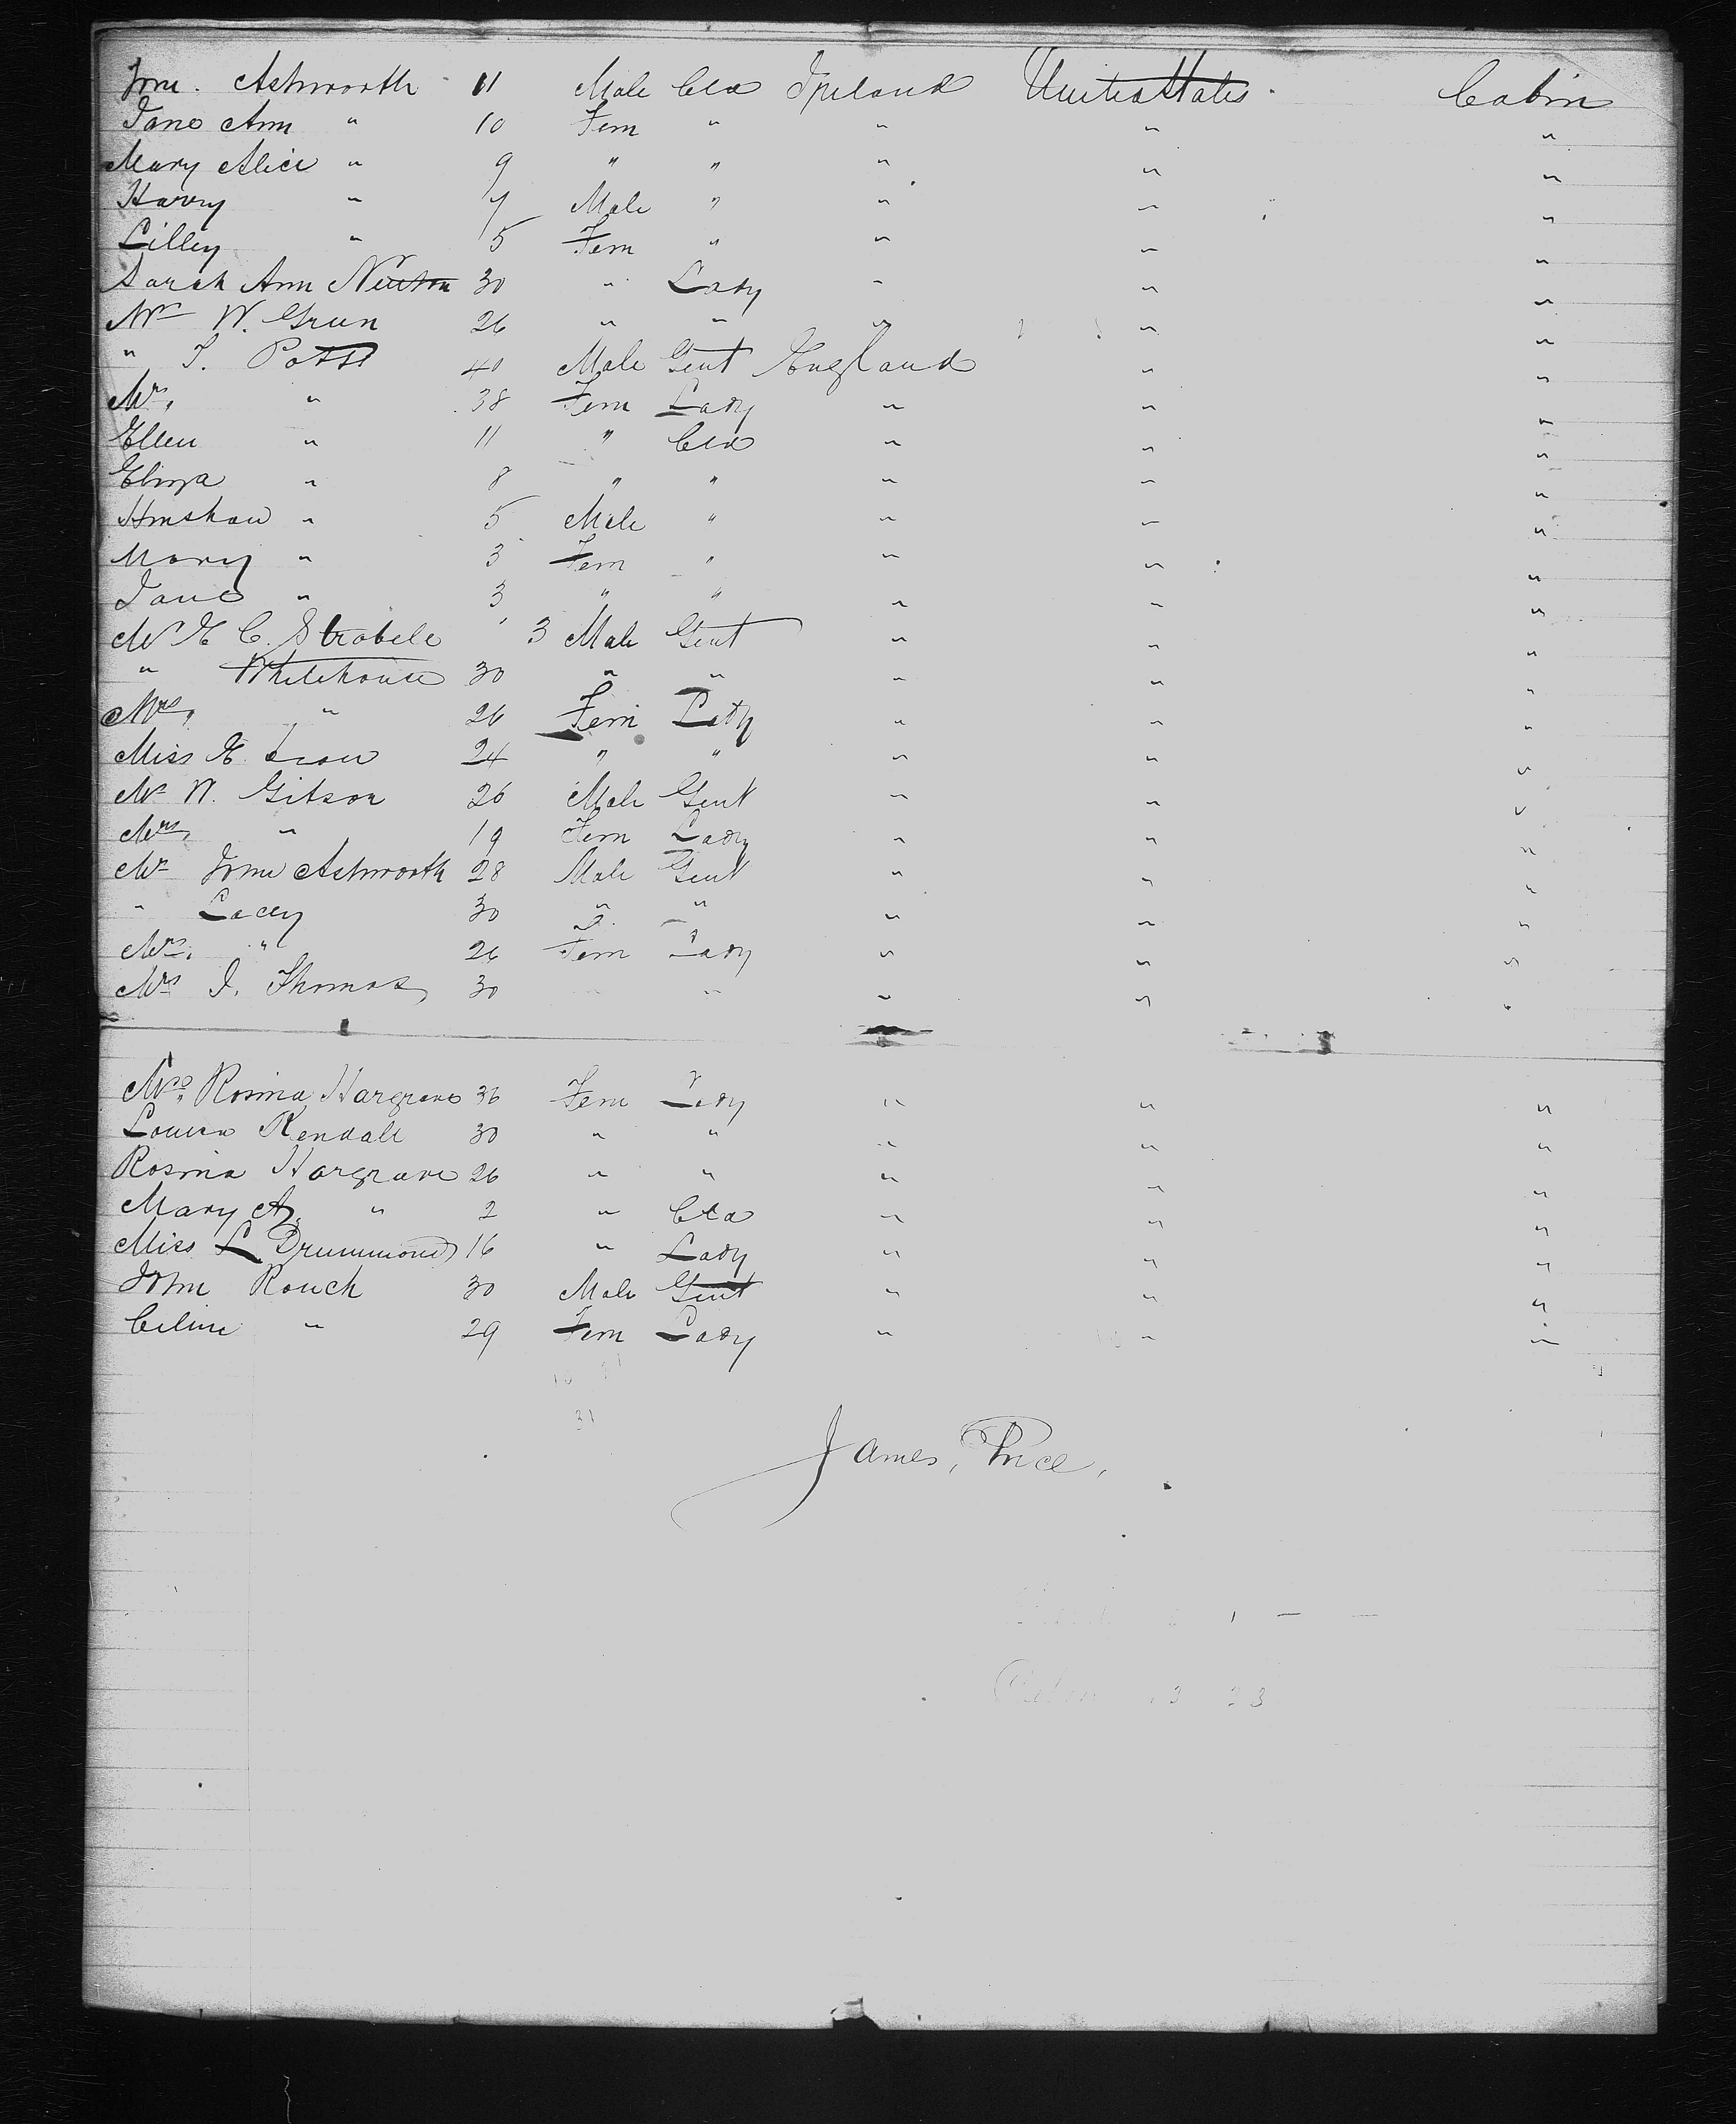 Jno. Ashworth 11 Male Cld Ireland United States Cabin
Jane Ann " 10 Fem " " " "
Mary Alice " 9 " " " " "
Harry " 7 Male " " " "
Lilley " 5 Fem " " " "
Sarah Ann Newton 30 " Lady " " "
Mrs W. Green 26 " " " " "
" T. Potts 40 Male Gent England " "
Mrs, " 38 Fem Lady " " "
Ellen " 11 " Cld " " "
Eliza " 8 " " " " "
Hinshaw " 5 Male " " " "
Mary " 3 Fem " " " "
Jane " 3 " " " " "
Mr E C. Strobele 3 Male Gent " " "
" Whitehouse 30 " " " " "
Mrs, " 26 Fem Lady " " "
Miss E. 24 " " " " "
Mr W. Gibson 26 Male Gent " " "
Mrs, " 19 Fem Lady " " "
Mr Jno Ashworth 28 Male Gent " " "
" Lacey 30 " " " " "
Mrs. " 26 Fem Lady " " "
Mrs J. Thomas 30 " " " " "
Mrs. Rosina Hargrave 36 Fem Lady " " "
Louisa Kendall 30 " " " " "
Rosina Hargrave 26 " " " " "
Mary A. " 2 " Cld " " "
Miss L Drummond 16 " Lady " " "
John Rouch 30 Male Gent " " "
Celine " 29 Fem Lady " " "
31
James, Price,